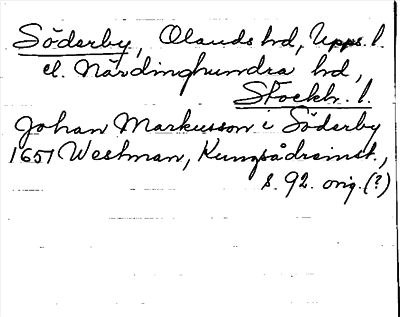 Söderby, Olands hd, Upps. l.
el. Närdinghundra hd,
Stockh. l.
Johan Markusson i Söderby
1651 Westman, Kungsådreinst.,
s. 92. orig. (?)